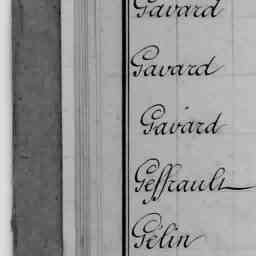 Gavard
Gavard
Gavard
Geffrault
Gélin